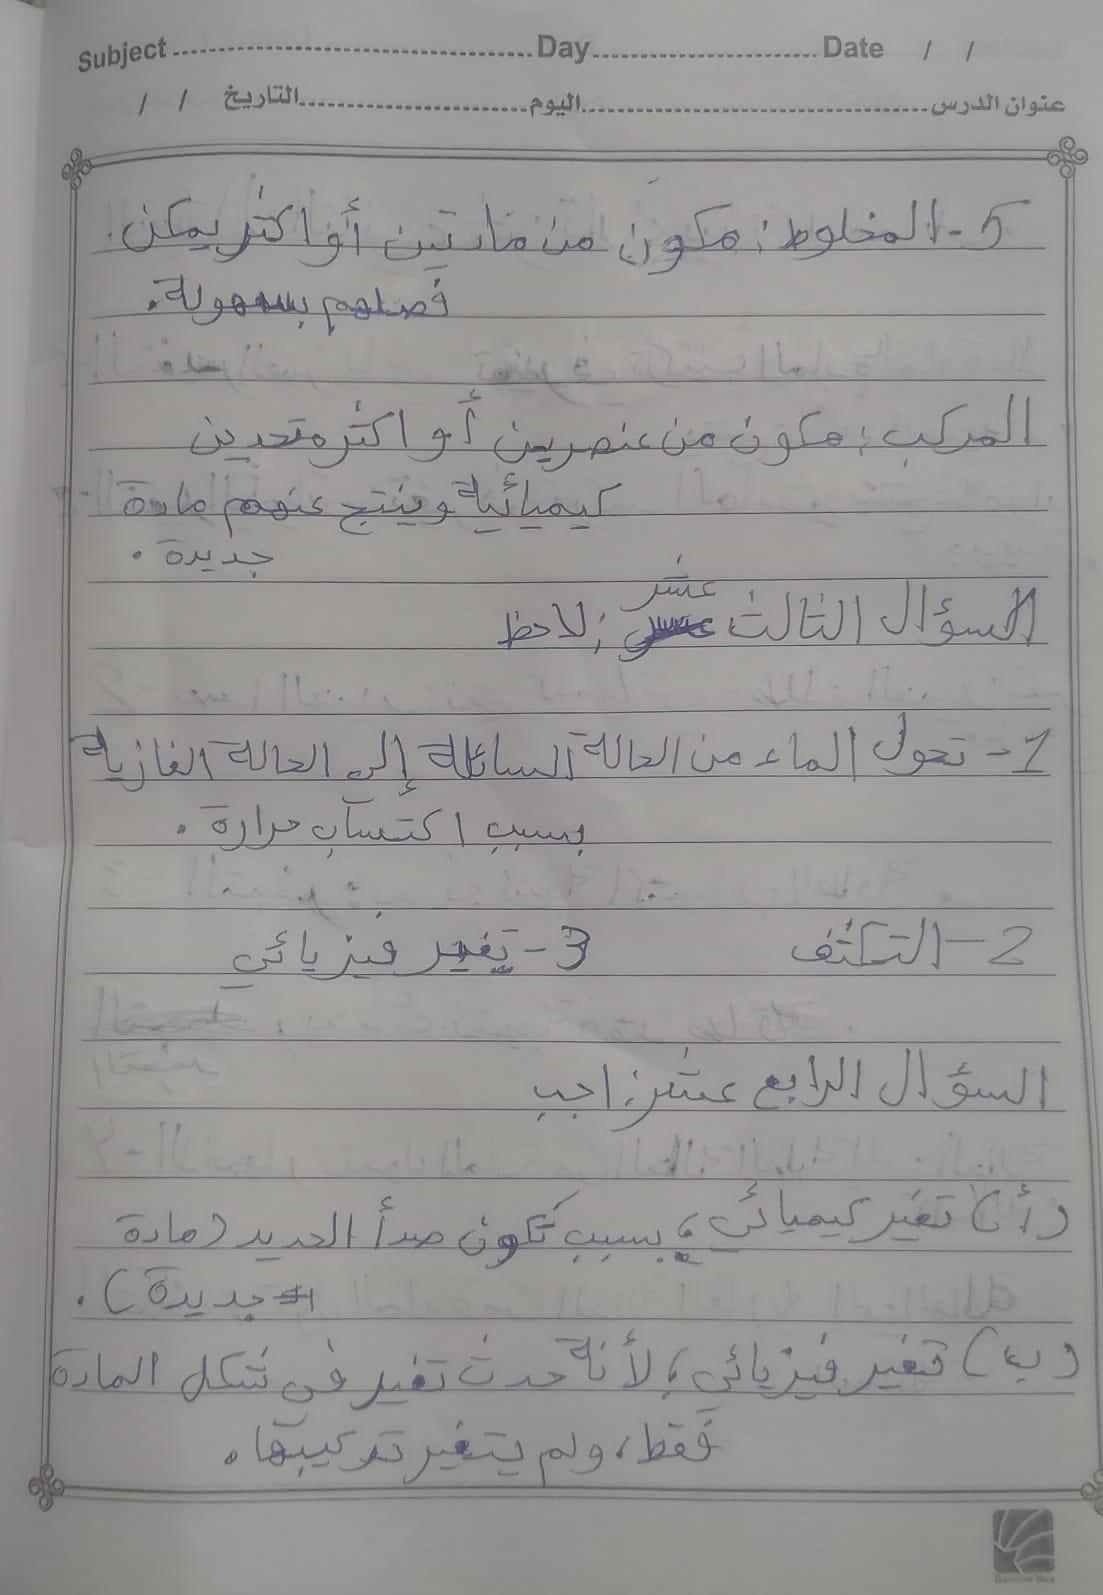 Subject ........ Day ........ Date / /
عنوان الدرس ........ اليوم ........ التاريخ / /
5- المخلوط : مكون من مادتين أو اكثر يمكن
فصلهم بسهولة .
المركب : مكون من عنصرين أو اكثر متحدين
كيميائية وينتج عنهم مادة
جديدة .
السؤال الثالث عشر : لاحظ
1- تحول الماء من الحالة السائلة إلى الحالة الغازية
بسبب اكتساب حرارة .
2- التكثف 3- تغير فيزيائي
السؤال الرابع عشر : اجب
(أ) تغير كيميائي ، بسبب تكون صدأ الحديد (مادة
جديدة) .
(ب) تغير فيزيائي ، لأنة حدث تغير في شكل المادة
فقط ، ولم يتغير تركيبها .